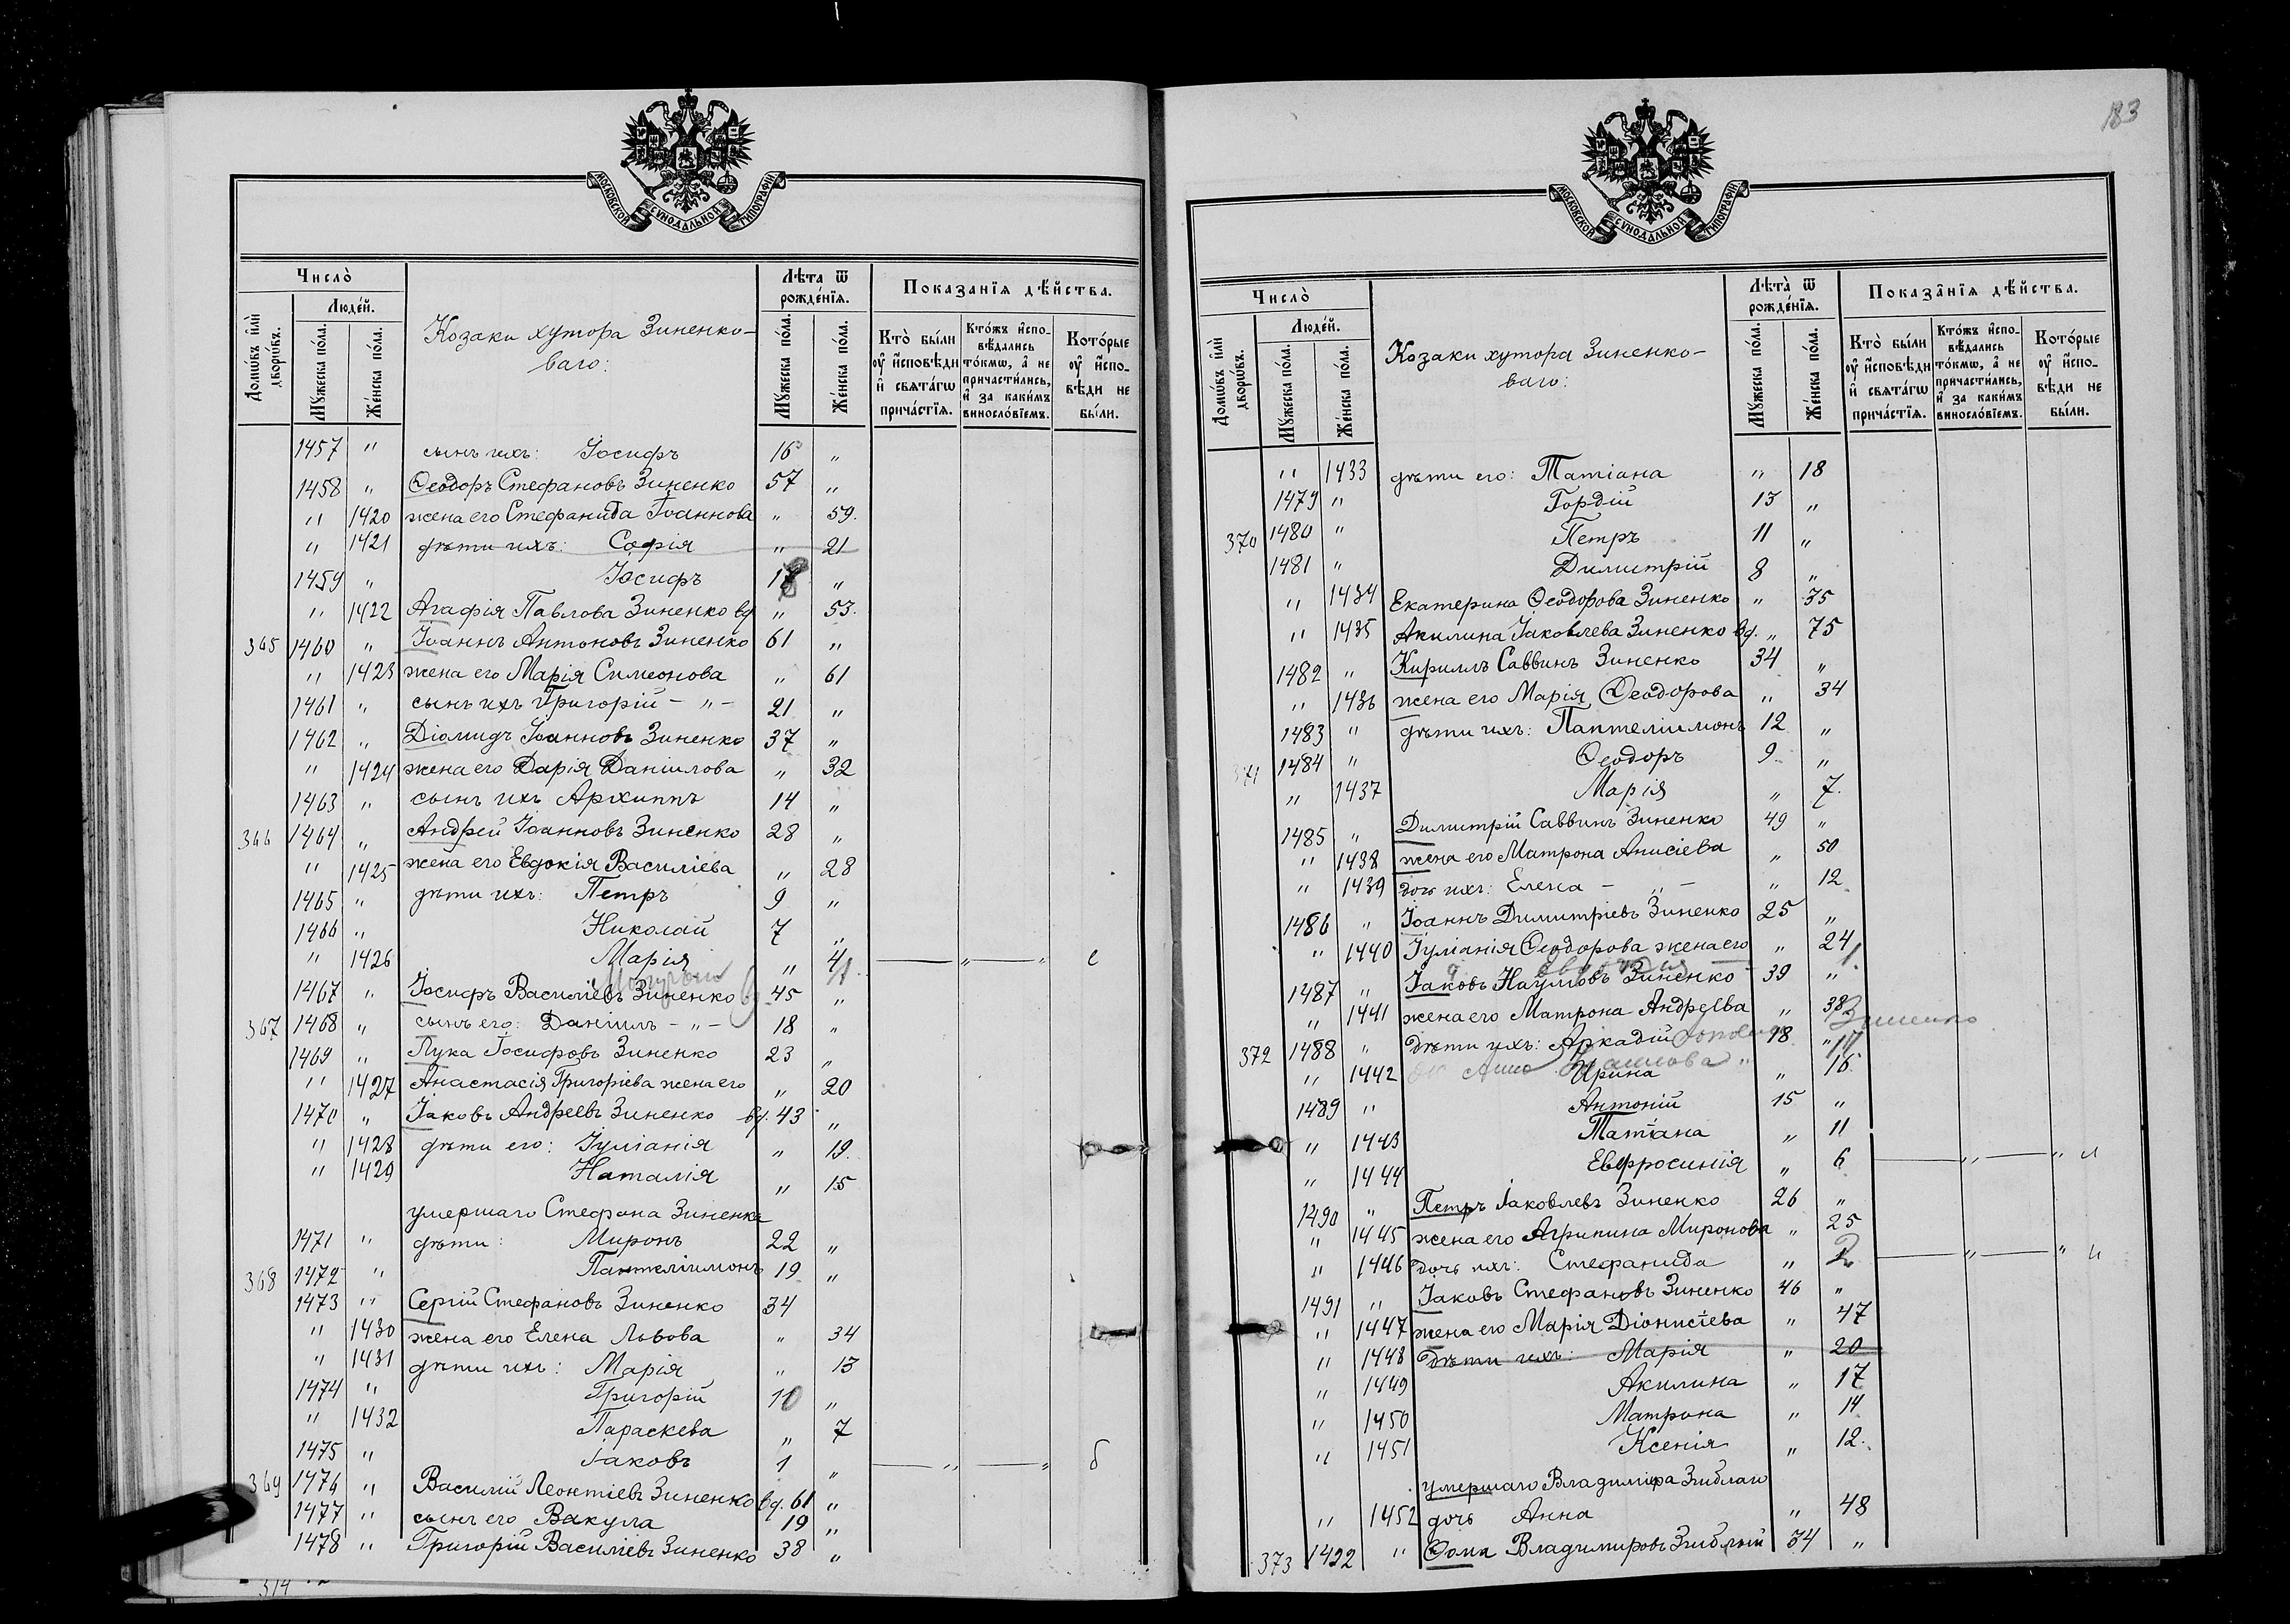 МОСКОВСКОЙ СѴНОДАЛЬНОЙ ТИПОГРАФІИ
Число̀
Людéй.
Домѡ́въ и҆лѝ дворѡ́въ.
Мꙋ́жеска по́ла.
Же́нска по́ла.
Козаки хутора Зиненко-
ваго:
Лѣ́та ѿ рожде́нїѧ.
Мꙋ́жеска по́ла.
Же́нска по́ла.
Показа̑нїѧ дѣ́йства.
Кто̀ бы́ли оу҆ и҆сповѣ́ди и҆ свѧта́гѡ прича́стїѧ.
Кто́жъ и҆спо-вѣ́дались то́кмѡ, а҆ не причасти́лись, и҆ за каки́мъ винослóвїемъ.
Кото́рые оу҆ и҆спо-вѣ́ди не бы́ли.
1457 " сынъ ихъ: Іосифъ 16 "
1458 " Ѳеодоръ Стефановъ Зиненко 57 "
" 1420 жена его Стефанида Іоаннова " 59.
" 1421 дѣти ихъ: Софія " 21
1459 " Іосифъ "
" 1422 Агафія Павлова Зиненко вд " 53.
365 1460 " Іоаннъ Антоновъ Зиненко 61 "
" 1423 жена его Марія Симеонова " 61
1461 " сынъ ихъ Григорій - " - 21 "
1462 " Діомидъ Іоанновъ Зиненко 37 "
" 1424 жена его Дарія Даніилова " 32
1463 " сынъ ихъ Архиппъ 14 "
366 1464 " Андрей Іоанновъ Зиненко 28 "
" 1425 жена его Евдокія Василіева " 28
1465 " дѣти ихъ: Петръ 9 "
1466 " Николай 7 "
" 1426 Марія " 4 " "
1467 " Іосифъ Василіевъ Зиненко 45 "
367 1468 " сынъ его: Даніилъ - " - 18 "
1469 " Лука Іосифовъ Зиненко 23 "
" 1427 Анастасія Григоріева жена его " 20
1470 " Іаковъ Андреевъ Зиненко вд. 43 "
" 1428 дѣти его: Іуліанія " 19.
" 1429 Наталія " 15
умершаго Стефана Зиненка
1471 " дѣти: Миронъ 22 "
368 1472 " Пантеліимонъ 19 "
1473 " Сергій Стефановъ Зиненко 34
" 1430 жена его Елена Львова " 34
" 1431 дѣти ихъ: Марія " 13
1474 " Григорій 10 "
" 1432 Параскева " 7
1475 " Іаковъ 1 " " " б
369 1476 " Василій Леонтіевъ Зиненко вд. 61 "
1477 " сынъ его Вакула 19 "
1478 " Григорій Василіевъ Зиненко 38 "
314
183
МОСКОВСКОЙ СѴНОДАЛЬНОЙ ТИПОГРАФІИ
Число̀
Людéй.
Домѡ́въ и҆лѝ дворѡ́въ.
Мꙋ́жеска по́ла.
Же́нска по́ла.
Козаки хутора Зиненко-
ваго:
Лѣ́та ѿ рожде́нїѧ.
Мꙋ́жеска по́ла.
Же́нска по́ла.
Показа̑нїѧ дѣ́йства.
Кто̀ бы́ли оу҆ и҆сповѣ́ди и҆ свѧта́гѡ прича́стїѧ.
Кто́жъ и҆спо-вѣ́дались то́кмѡ, а҆ не причасти́лись, и҆ за каки́мъ винослóвїемъ.
Кото́рые оу҆ и҆спо-вѣ́ди не бы́ли.
" 1433 дѣти его: Татіана " 18
1479 " Гордій 13 "
370 1480 " Петръ 11 "
1481 " Димитрій 8 "
" 1434 Екатерина Ѳеодорова Зиненко " 35
" 1435 Акилина Іаковлева Зиненко вд. " 75
1482 " Кириллъ Саввинъ Зиненко 34 "
" 1436 жена его Марія Ѳеодорова " 34
1483 " дѣти ихъ: Пантеліимонъ 12 "
371 1484 " Ѳеодоръ 9. "
" 1437 Марія " 7.
1485 " Димитрій Саввинъ Зиненко 49 "
" 1438 жена его Матрона Анисіева " 50
" 1439 дочь ихъ: Елена - " - " 12
1486 " Іоаннъ Димитріевъ Зиненко 25 "
" 1440 Іуліанія Ѳеодорова жена его " 24
1487 " Іаковъ Наумовъ Зиненко 39 "
" 1441 жена его Матрона Андреева " 38 Зиненко
372 1488 " дѣти ихъ: Аркадій 18 "
" 1442 Ирина " 16
1489 " Антоній 15 "
" 1443 Татіана " 11
" 1444 Евфросинія " 6 " "
1490 " Петръ Іаковлевъ Зиненко 26 "
" 1445 жена его Агрипина Миронова " 25
" 1446 дочь ихъ: Стефанида " 2 " "
1491 " Іаковъ Стефановъ Зиненко 46 "
" 1447 жена его Марія Діонисіева " 47
" 1448 дѣти ихъ: Марія " 20
" 1449 Акилина " 17
" 1450 Матрона " 14
" 1451 Ксенія " 12.
умершаго Владиміра Згиблаго
" 1452 дочь Анна " 48
373 1492 " Ѳома Владимировъ Згиблый 34 "